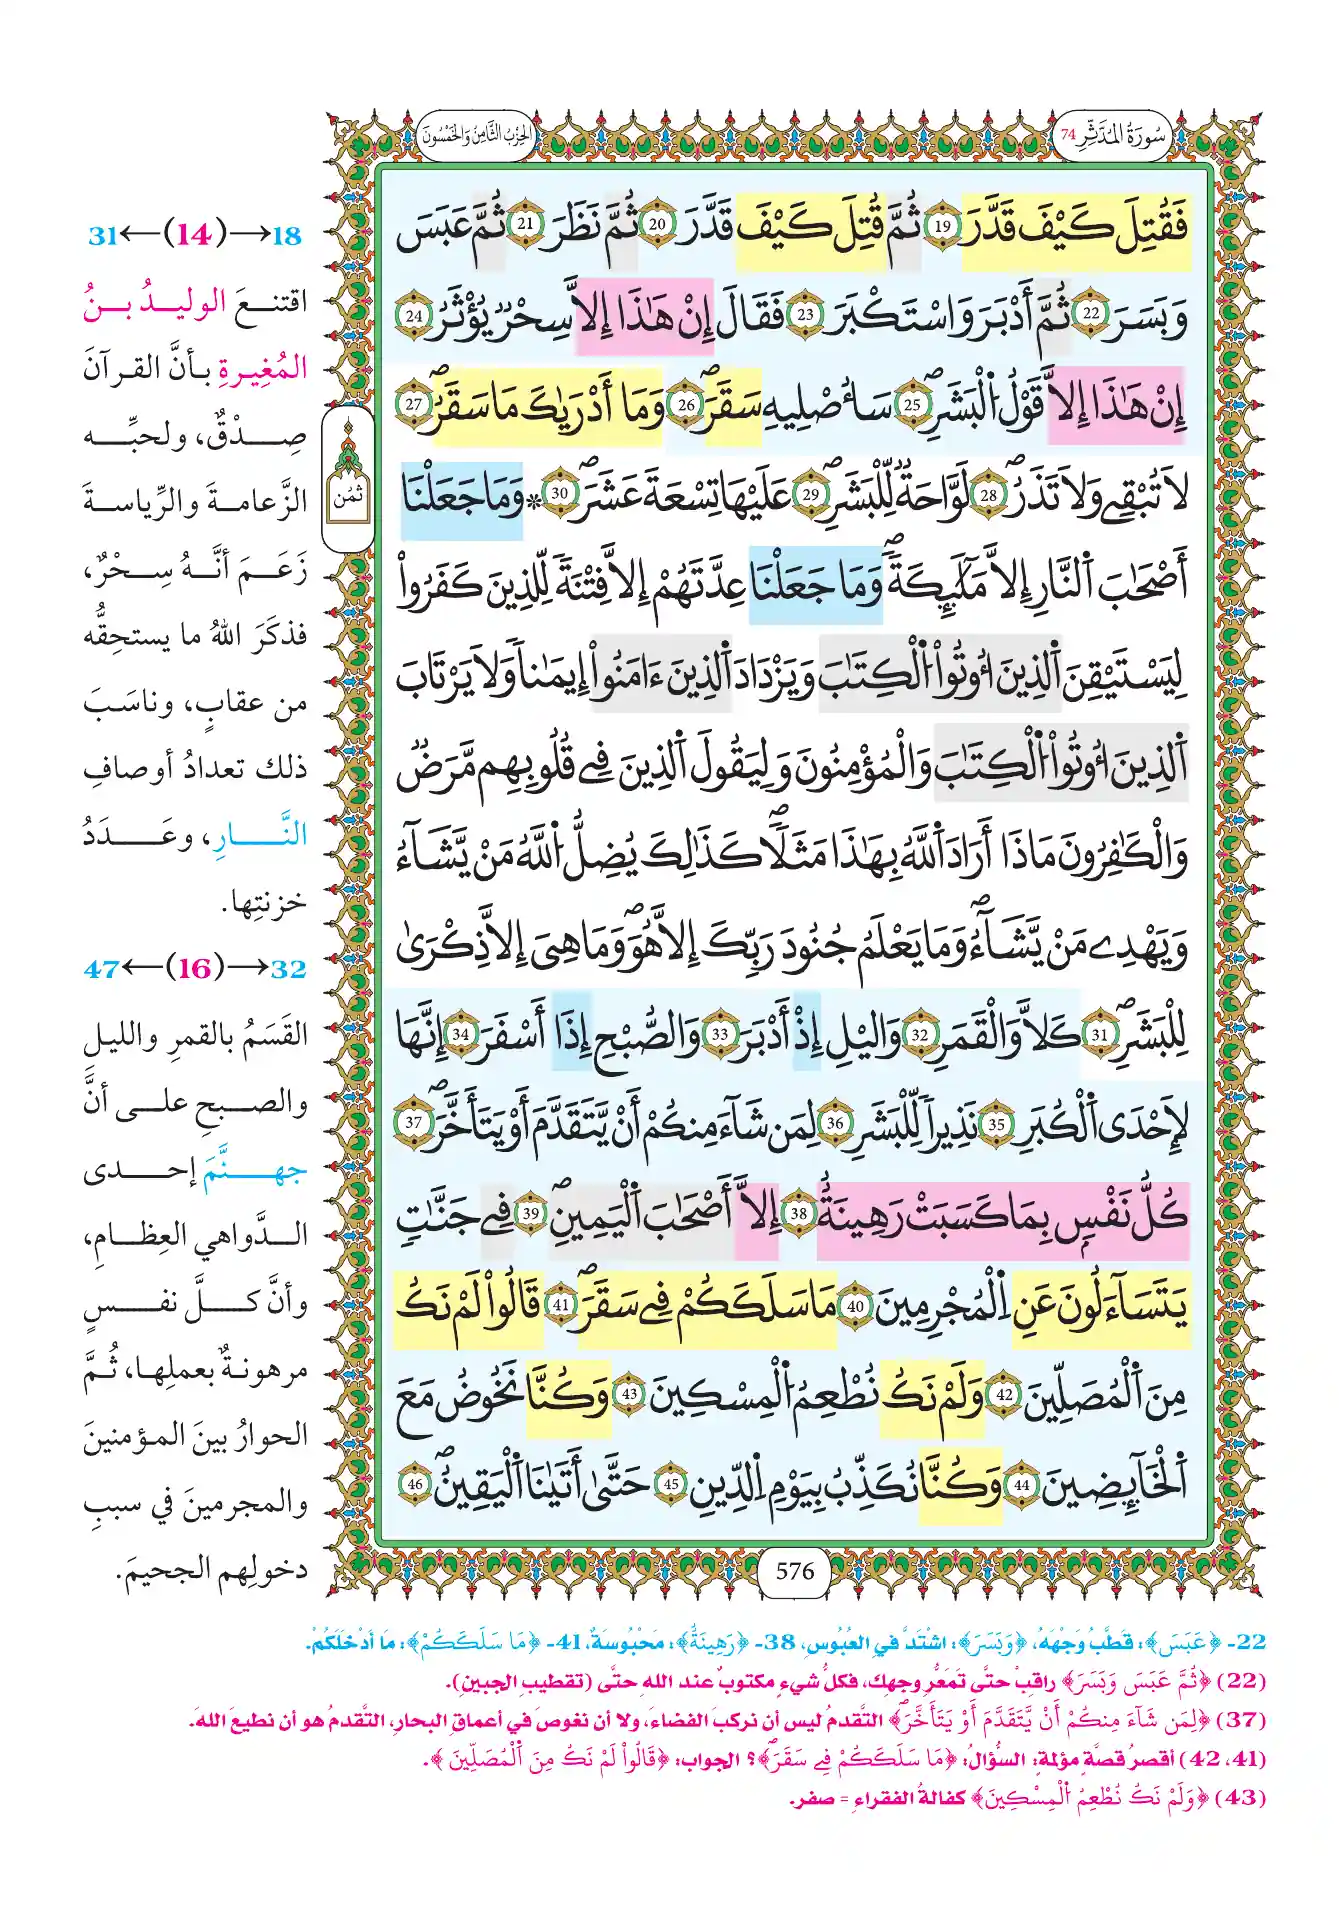 سُورَةُ المُدَّثِّرِ 74
الحِزْبُ الثَّامِنُ وَالخَمْسُونَ
فَقُتِلَ كَيْفَ قَدَّرَ 19 ثُمَّ قُتِلَ كَيْفَ قَدَّرَ 20 ثُمَّ نَظَرَ 21 ثُمَّ عَبَسَ
وَبَسَرَ 22 ثُمَّ أَدْبَرَ وَاسْتَكْبَرَ 23 فَقَالَ إِنْ هَٰذَا إِلَّا سِحْرٌ يُؤْثَرُ 24
إِنْ هَٰذَا إِلَّا قَوْلُ اُ۬لْبَشَرِۖ 25 سَأُصْلِيهِ سَقَرَۖ 26 وَمَا أَدْرَيٰكَ مَا سَقَرُۖ 27
لَا تُبْقِے وَلَا تَذَرُۖ 28 لَوَّاحَةٌ لِّلْبَشَرِۖ 29 عَلَيْهَا تِسْعَةَ عَشَرَۖ 30 * وَمَا جَعَلْنَا
أَصْحَٰبَ اَ۬لنَّارِ إِلَّا مَلَٰٓئِكَةٗۖ وَمَا جَعَلْنَا عِدَّتَهُمْ إِلَّا فِتْنَةٗ لِّلذِينَ كَفَرُواْ
لِيَسْتَيْقِنَ اَ۬لذِينَ أُوتُواْ اُ۬لْكِتَٰبَ وَيَزْدَادَ اَ۬لذِينَ ءَامَنُواْ إِيمَٰناٗ وَلَا يَرْتَابَ
اَ۬لذِينَ أُوتُواْ اُ۬لْكِتَٰبَ وَالْمُؤْمِنُونَ وَلِيَقُولَ اَ۬لذِينَ فِے قُلُوبِهِم مَّرَضٌ
وَالْكَٰفِرُونَ مَاذَا أَرَادَ اَ۬للَّهُ بِهَٰذَا مَثَلاٗۖ كَذَٰلِكَ يُضِلُّ اُ۬للَّهُ مَنْ يَّشَآءُ
وَيَهْدِے مَنْ يَّشَآءُۖ وَمَا يَعْلَمُ جُنُودَ رَبِّكَ إِلَّا هُوَۖ وَمَا هِيَ إِلَّا ذِكْرَىٰ
لِلْبَشَرِۖ 31 كَلَّا وَالْقَمَرِ 32 وَاليْلِ إِذْ أَدْبَرَ 33 وَالصُّبْحِ إِذَا أَسْفَرَ 34 إِنَّهَا
لَإِحْدَى اَ۬لْكُبَرِ 35 نَذِيراٗ لِّلْبَشَرِ 36 لِمَن شَآءَ مِنكُمْ أَنْ يَّتَقَدَّمَ أَوْ يَتَأَخَّرَۖ 37
كُلُّ نَفْسِۢ بِمَا كَسَبَتْ رَهِينَةٌ 38 إِلَّا أَصْحَٰبَ اَ۬لْيَمِينِۖ 39 فِے جَنَّٰتٖ
يَتَسَآءَلُونَ عَنِ اِ۬لْمُجْرِمِينَ 40 مَا سَلَكَكُمْ فِے سَقَرَۖ 41 قَالُواْ لَمْ نَكُ
مِنَ اَ۬لْمُصَلِّينَ 42 وَلَمْ نَكُ نُطْعِمُ اُ۬لْمِسْكِينَ 43 وَكُنَّا نَخُوضُ مَعَ
اَ۬لْخَآئِضِينَ 44 وَكُنَّا نُكَذِّبُ بِيَوْمِ اِ۬لدِّينِ 45 حَتَّىٰ أَتَيٰنَا اَ۬لْيَقِينُۖ 46
576
ثُمُن
18→(14)←31
اقتنعَ الوليدُ بنُ
المُغِيرةِ بأنَّ القرآنَ
صِدْقٌ، ولحبِّه
الزَّعامةَ والرِّياسةَ
زَعَمَ أنَّهُ سِحْرٌ،
فذكَرَ اللهُ ما يستحِقُّه
من عقابٍ، وناسَبَ
ذلك تعدادُ أوصافِ
النَّارِ، وعَدَدُ
خزنتِها.
32→(16)←47
القَسَمُ بالقمرِ والليلِ
والصبحِ على أنَّ
جهنَّمَ إحدى
الدَّواهي العِظامِ،
وأنَّ كلَّ نفسٍ
مرهونةٌ بعملِها، ثُمَّ
الحوارُ بينَ المؤمنينَ
والمجرمينَ في سببِ
دخولِهم الجحيمَ.
22- ﴿عَبَسَ﴾: قَطَّبَ وَجْهَهُ، ﴿وَبَسَرَ﴾: اشْتَدَّ فِي العُبُوسِ، 38- ﴿رَهِينَةٌ﴾: مَحْبُوسَةٌ، 41- ﴿مَا سَلَكَكُمْ﴾: مَا أَدْخَلَكُمْ.
(22) ﴿ثُمَّ عَبَسَ وَبَسَرَ﴾ راقِبْ حتَّى تَمَعُّر وجهِك، فكلُّ شيءٍ مكتوبٌ عند اللهِ حتَّى (تقطيب الجبين).
(37) ﴿لِمَن شَآءَ مِنكُمْ أَنْ يَّتَقَدَّمَ أَوْ يَتَأَخَّرَۖ﴾ التَّقدمُ ليس أن نركبَ الفضاءَ، ولا أن نغوصَ في أعماقِ البحارِ، التَّقدمُ هو أن نطيعَ الله.
(41، 42) أقصرُ قصَّةٍ مؤلمةٍ: السُّؤالُ: ﴿مَا سَلَكَكُمْ فِے سَقَرَۖ﴾؟ الجواب: ﴿قَالُواْ لَمْ نَكُ مِنَ اَ۬لْمُصَلِّينَ﴾.
(43) ﴿وَلَمْ نَكُ نُطْعِمُ اُ۬لْمِسْكِينَ﴾ كفالةُ الفقراءِ = صفر.